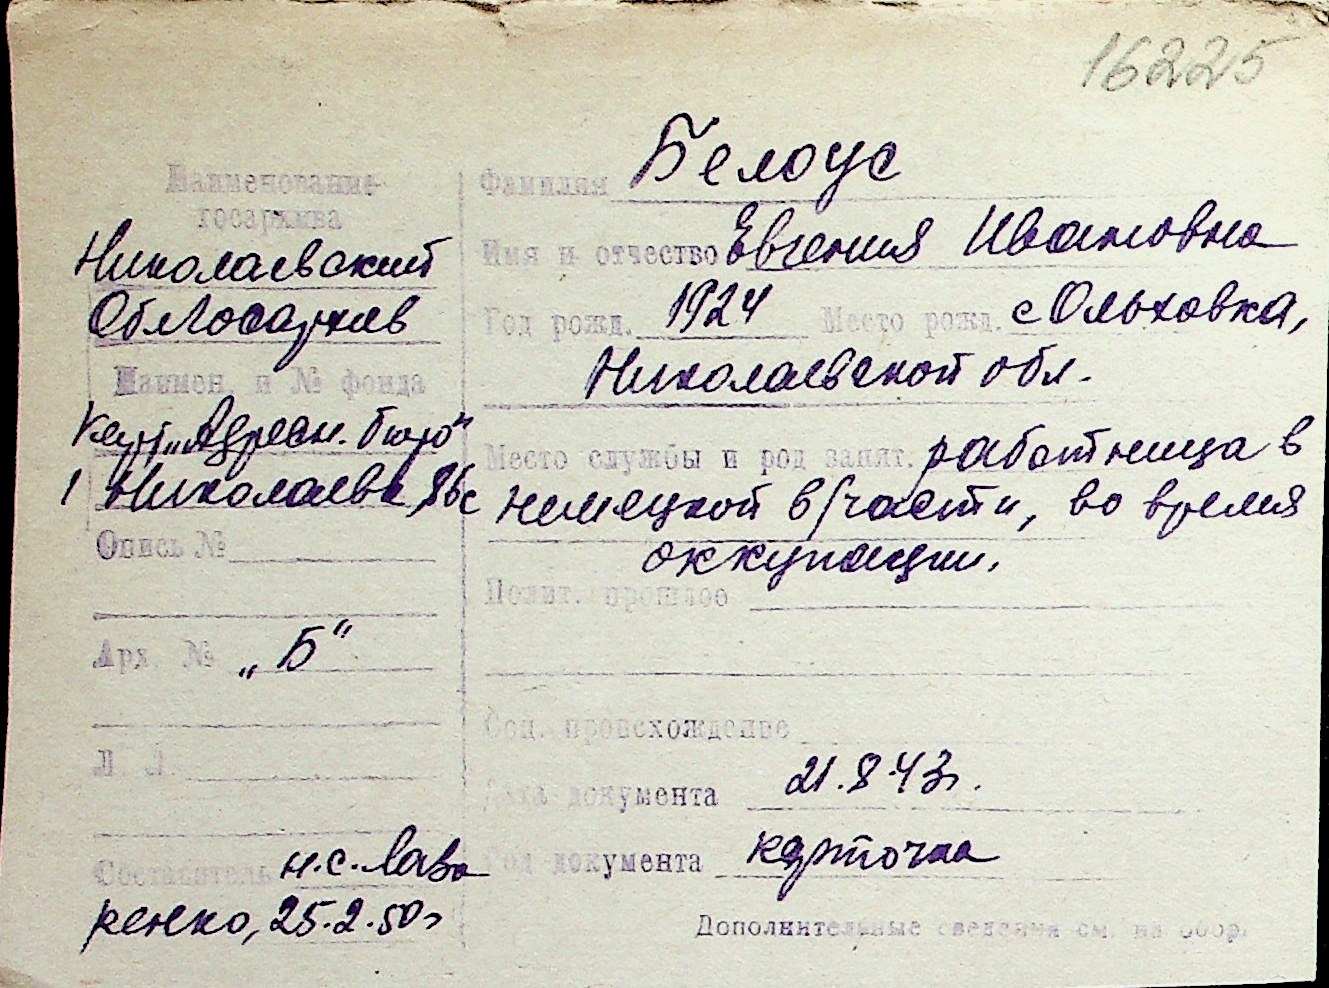 16225
Наименование
госархива
Николаевский
Облгосархив
Наимен. и № фонда
Карт. „Адресн. бюро“
Николаева
Опись №
Арх. № „Б“
Л. Л.
Составитель н.с. Лав
ренко, 25.2.50г
Фамилия Белоус
Имя и отчество Евгения Ивановна
Год рожд. 1924 Место рожд. с Ольховка,
Николаевской обл.
Место службы и род занят. работница в
немецкой в/части, во время
оккупации.
Полит. прошлое
Соц. происхождение
Дата документа 21.8.43г.
Род документа карточка
Дополнительные сведения см. на обор.